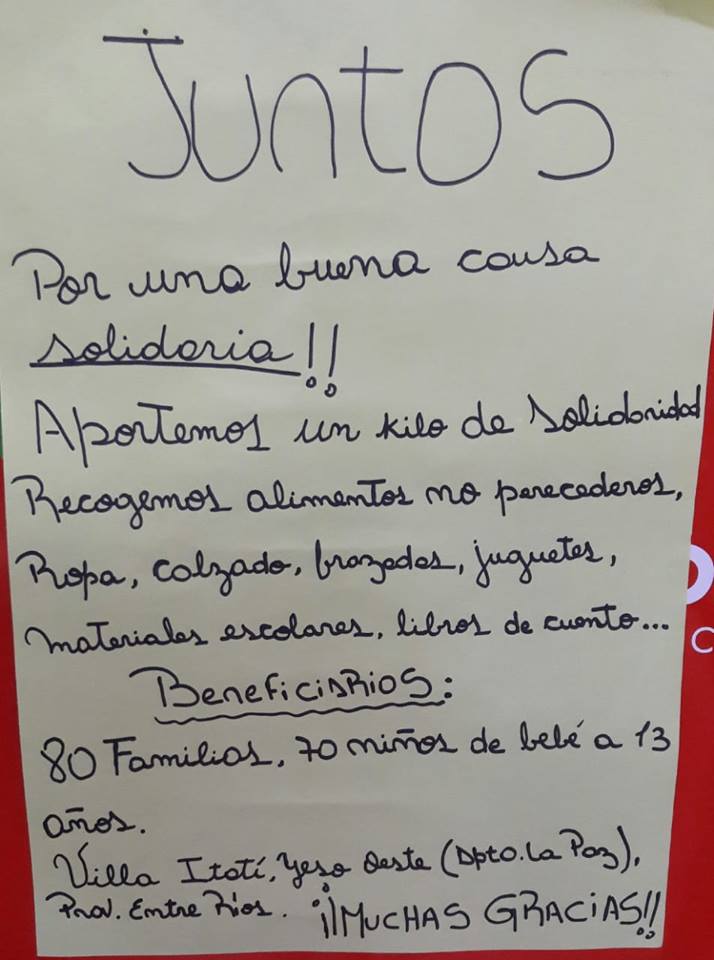 Juntos
Por una buena causa
solidaria!!
Aportemos un kilo de solidaridad
Recogemos alimentos no perecederos,
Ropa, calzado, frazadas, juguetes,
materiales escolares, libros de cuento...
Beneficiarios:
80 Familias, 70 niños de bebé a 13
años.
Villa Itatí, Yeso Oeste (Dpto. La Paz),
Prov. Entre Ríos. ¡¡MUCHAS GRACIAS!!